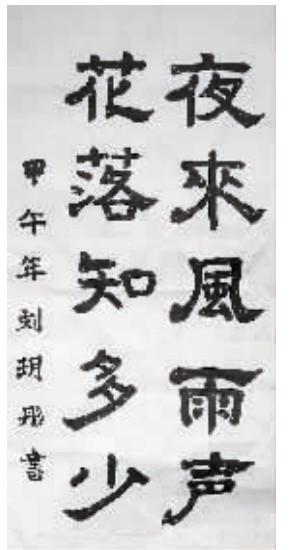 夜來風雨声
花落知多少
甲午年刘胡彤書